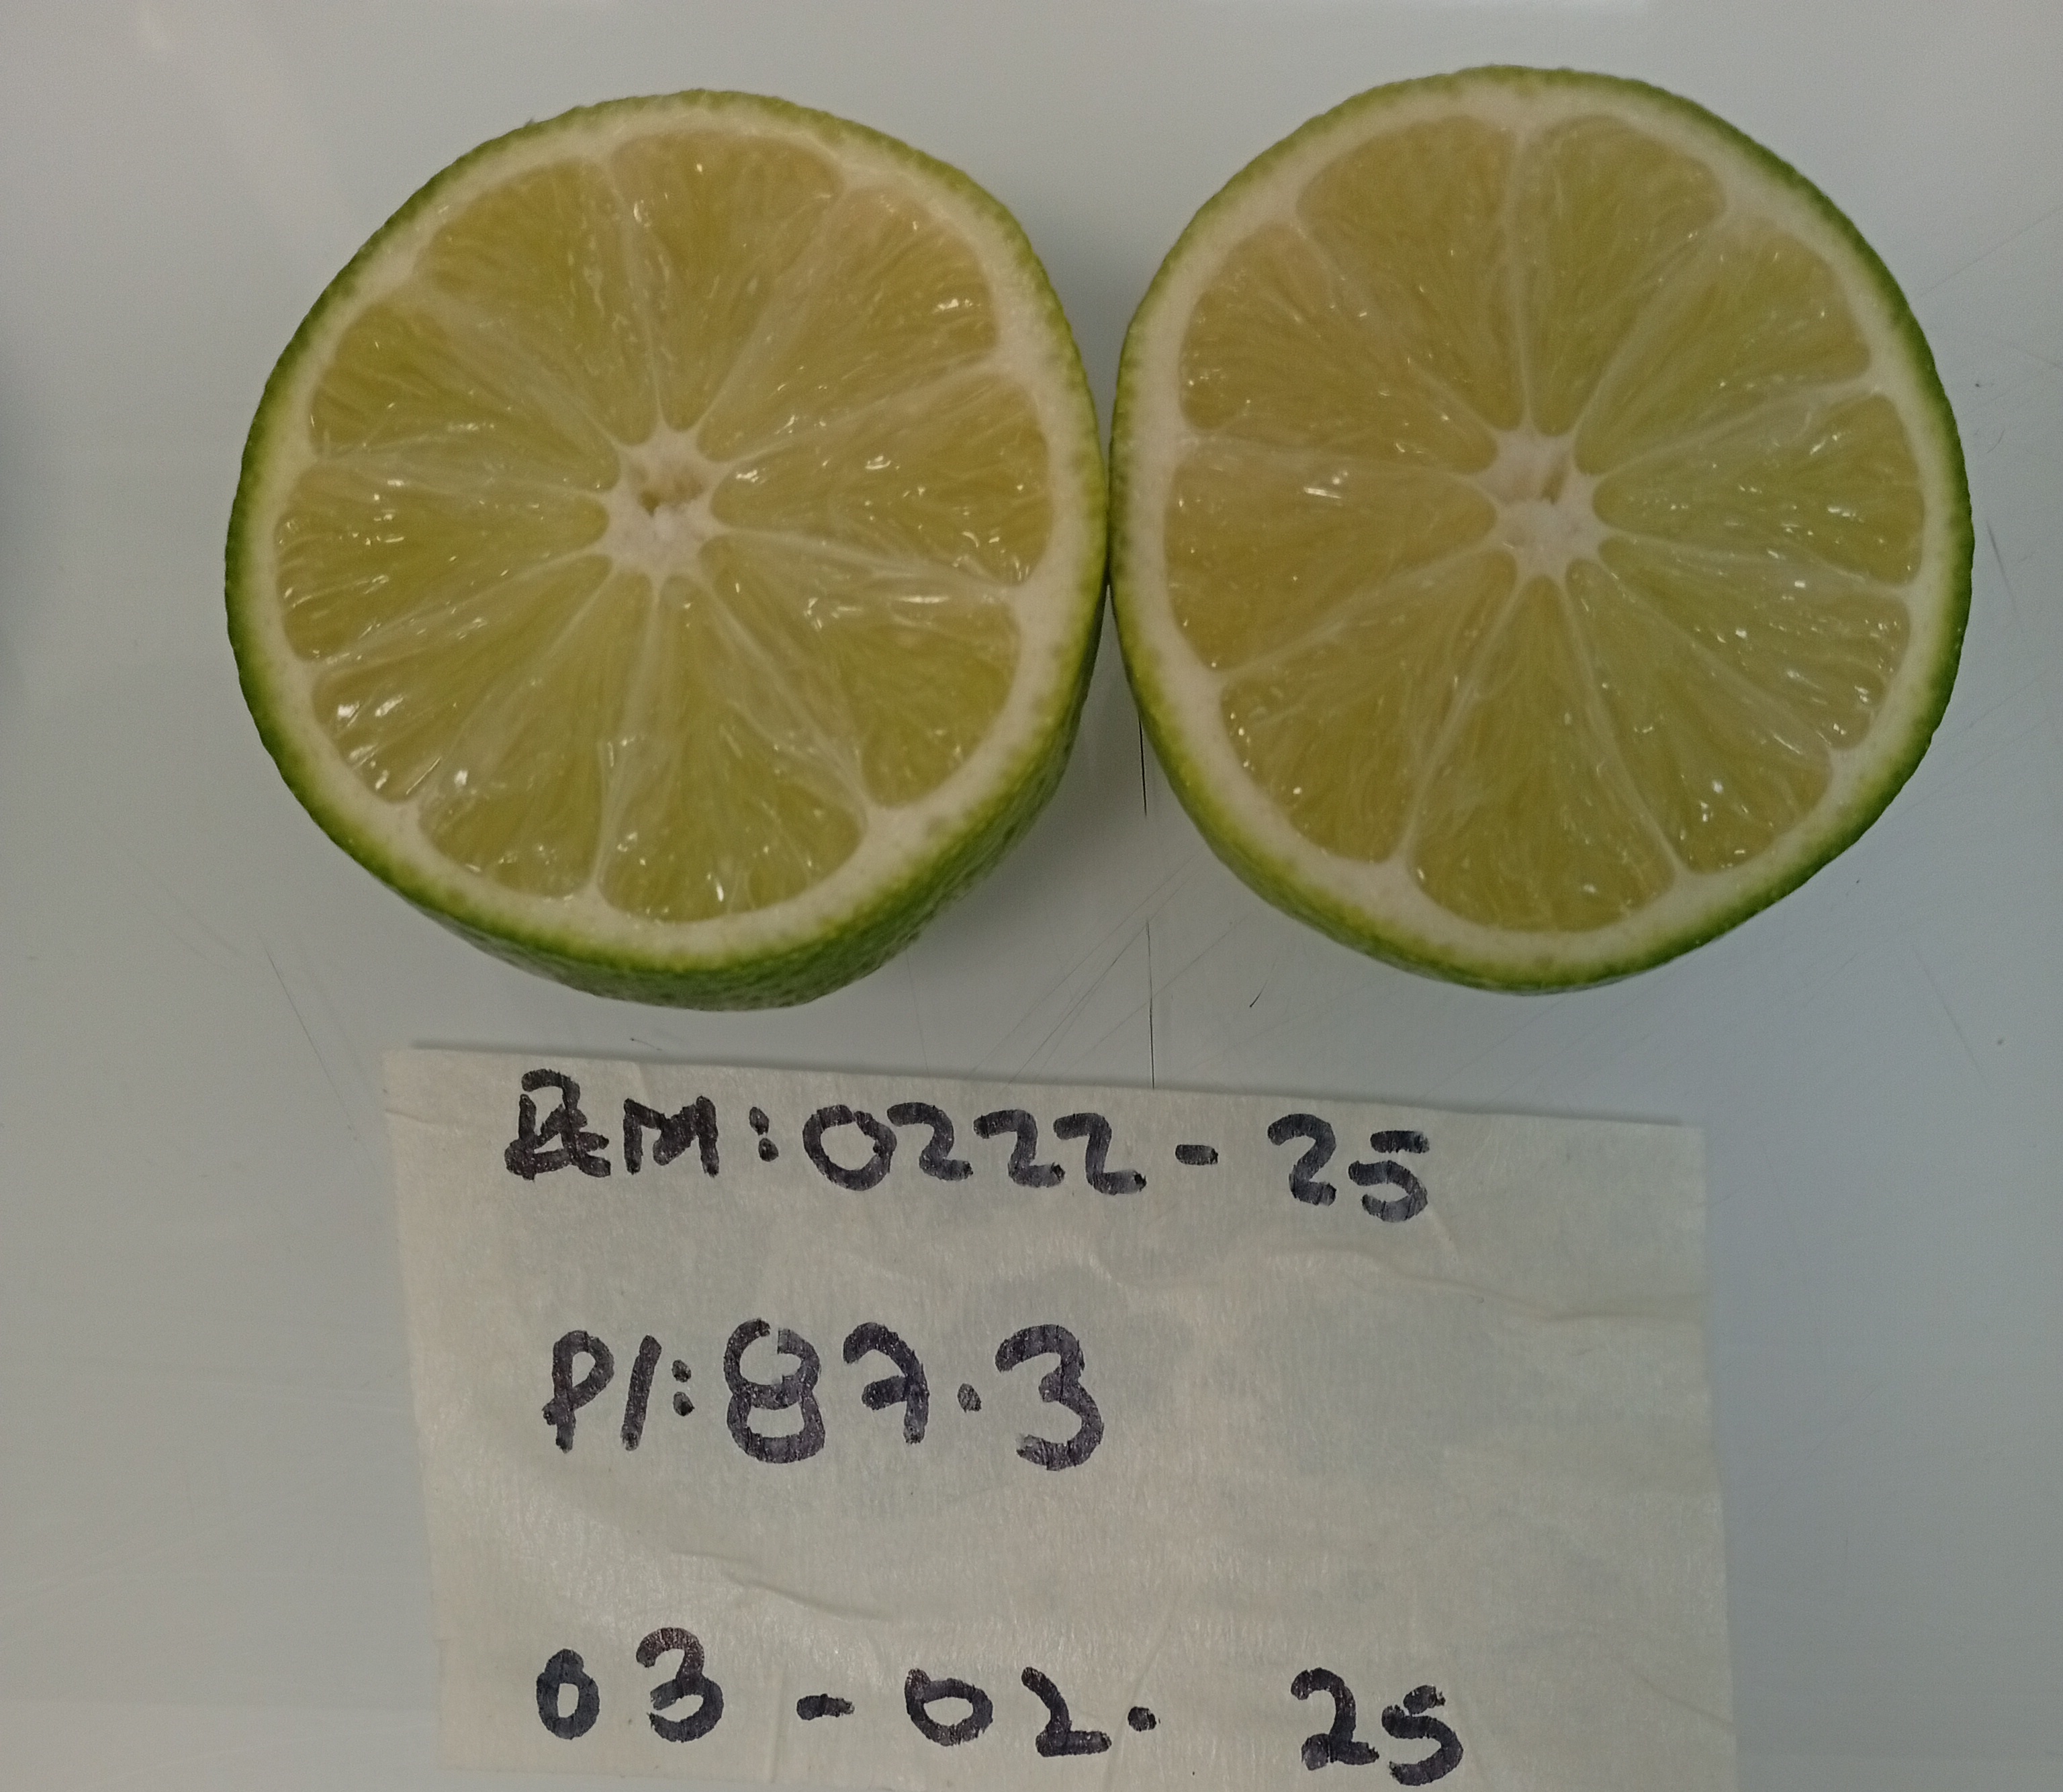 EM:0222-25
P1:87.3
03-02. 25